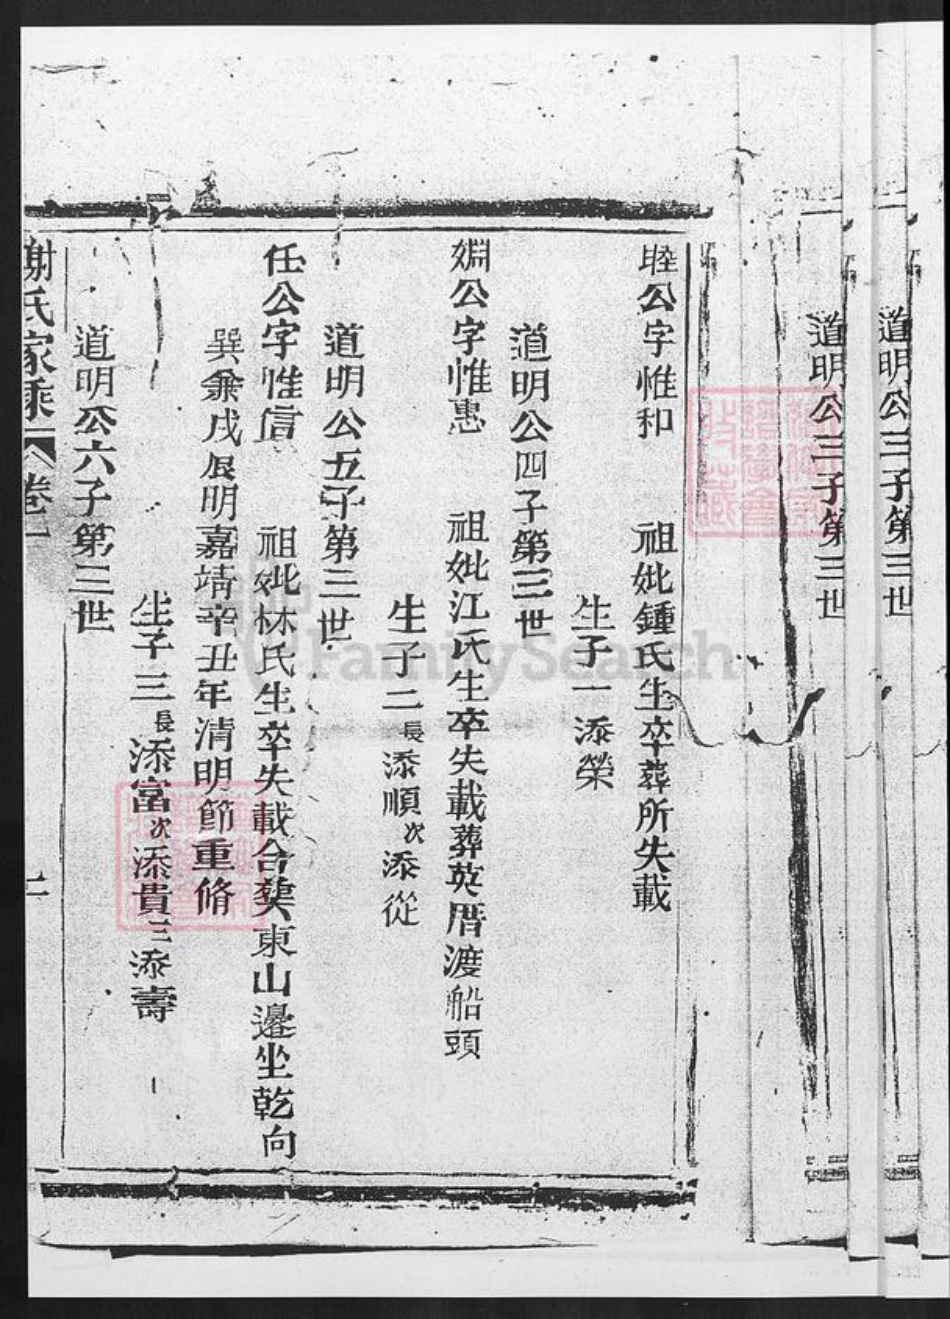 道明公三子第三世
道明公三子第三世
睦公字惟和 祖妣鍾氏生卒葬所失載
生子一添榮
道明公四子第三世
婣公字惟惠 祖妣江氏生卒失載葬英厝渡船頭
生子二長添順次添從
道明公五子第三世
任公字惟信 祖妣林氏生卒失載合葬東山邊坐乾向
巽兼戌辰明嘉靖辛丑年清明節重修
生子三長添富次添貴三添壽
道明公六子第三世
謝氏家乘 卷一 二
FamilySearch